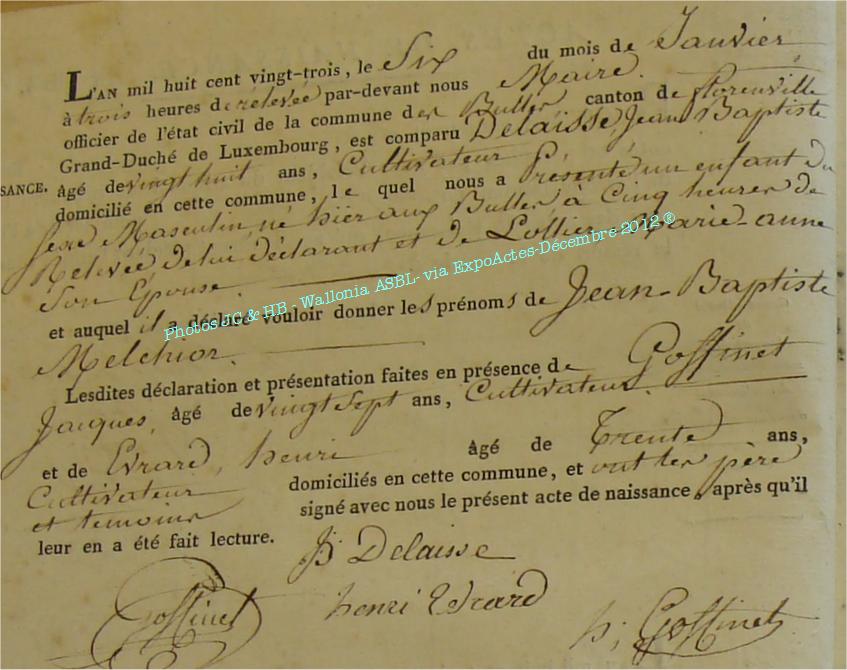 L'AN mil huit cent vingt-trois, le Six du mois de Janvier
à trois heures de relevée par-devant nous Maire.
officier de l'état civil de la commune des Bulles, canton de florenville
Grand-Duché de Luxembourg, est comparu Delaisse, Jean Baptiste
SANCE. âgé de vingt huit ans, Cultivateur
domicilié en cette commune, le quel nous a Présenté un enfant du
Sexe Masculin, né hier aux Bulles à Cinq heures de
Relevée de lui déclarant et de Lollier Marie-anne
Son Epouse.
et auquel il a déclaré vouloir donner les prénoms de Jean-Baptiste
Melchior.
Lesdites déclaration et présentation faites en présence de Goffinet
Jacques, âgé de vingt Sept ans, Cultivateur
et de Evrard, henri âgé de Trente ans,
Cultivateur domiciliés en cette commune, et ont les père
et temoins signé avec nous le présent acte de naissance, après qu'il
leur en a été fait lecture.
JB Delaisse
Goffinet henri Evrard h; Goffinet
Photos JG & HB - Wallonia ASBL- via ExpoActes-Décembre 2012 ®